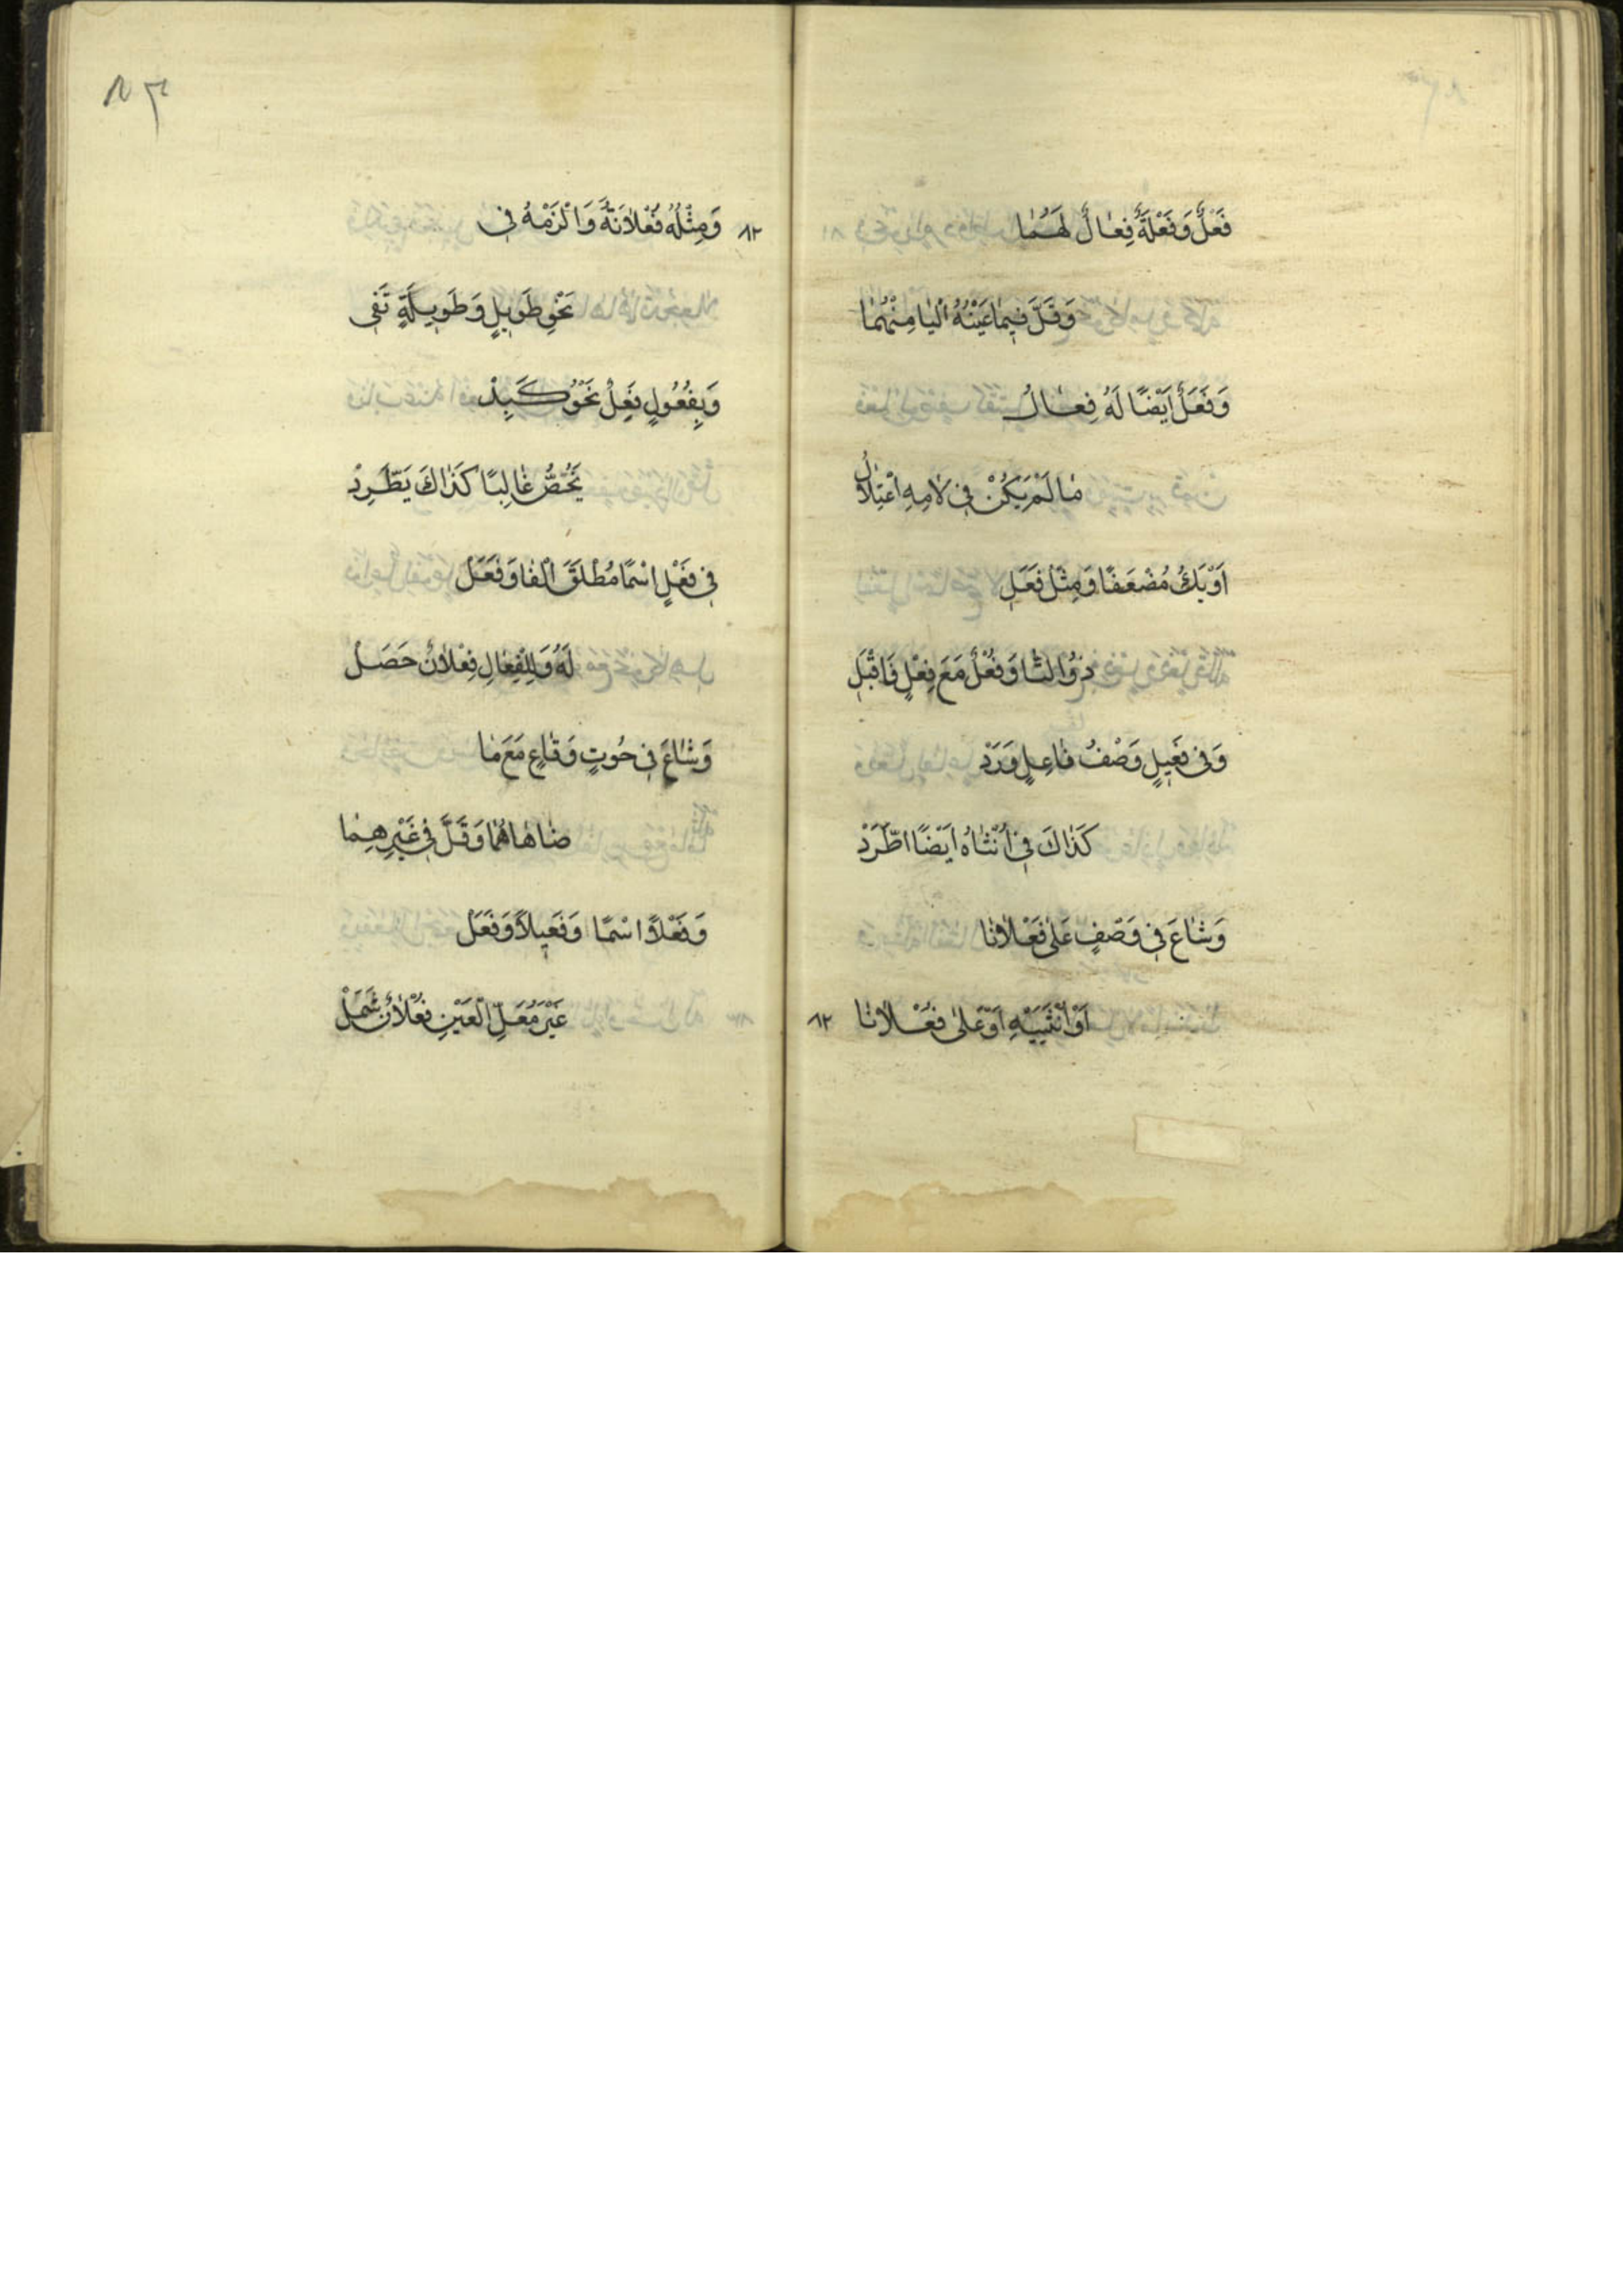 فَعْلٌ وَفَعْلَةٌ فِعَالٌ لَهُمَا
وَقَلَّ فِيمَا عَيْنُهُ الْيَا مِنْهُمَا
وَفَعَلٌ اَيْضًا لَهُ فِعَالُ
مَا لَمْ يَكُنْ فِي لَامِهِ اعْتِلَالُ
اَوْ يَكُ مُضْعَفًا وَمِثْلُ فَعَلِ
ذُو التَّا وَفُعْلٌ مَعَ فِعْلٍ فَاقْبَلِ
وَفِي فَعِيلٍ وَصْفُ فَاعِلٍ وَرَدْ
كَذَاكَ فِي أُنْثَاهُ اَيْضًا اطَّرَدْ
وَشَاعَ فِي وَصْفٍ عَلٰى فَعْلَانَا
اَوْ اُنْثَيَيْهِ اَوْ عَلٰى فُعْلَانَا
٨٢
٨٢
وَمِثْلُهُ فُعْلَانَةٌ وَالْزَمْهُ فِي
نَحْوِ طَوِيلٍ وَطَوِيلَةٍ تَفِي
وَبِفُعُولٍ فَعِلٌ نَحْوُ كَبِدْ
يُخَصُّ غَالِبًا كَذَاكَ يَطَّرِدْ
فِي فَعْلٍ اسْمًا مُطْلَقَ الْفَا وَفَعَلْ
لَهُ وَلِلْفِعَالِ فِعْلَانٌ حَصَلْ
وَشَاعَ فِي حُوتٍ وَقَاعٍ مَعَ مَا
ضَاهَاهُمَا وَقَلَّ فِي غَيْرِهِمَا
وَفَعْلًا اسْمًا وَفَعِيلًا وَفَعَلْ
غَيْرَ مُعَلِّ الْعَيْنِ فُعْلَانٌ شَمَلْ